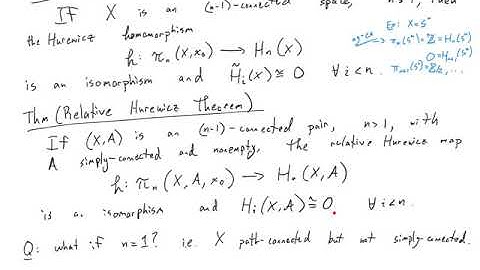 If X is an (n-1)-connected space, n>1, then
the Hurewicz homomorphism
h: πₙ(X,x₀) → Hₙ(X)
is an isomorphism and H̃ᵢ(X) ≅ 0 ∀ i<n.
Ex: X=Sⁿ
πₙ(Sⁿ) ≅ ℤ = Hₙ(Sⁿ)
0 = Hₙ₊₁(Sⁿ)
Thm (Relative Hurewicz Theorem)
If (X,A) is an (n-1)-connected pair, n>1, with
A simply-connected and nonempty, the relative Hurewicz map
h: πₙ(X,A,x₀) → Hₙ(X,A)
is an isomorphism and Hᵢ(X,A) ≅ 0 ∀ i<n.
Q: what if n=1? i.e. X path-connected but not simply-connected.